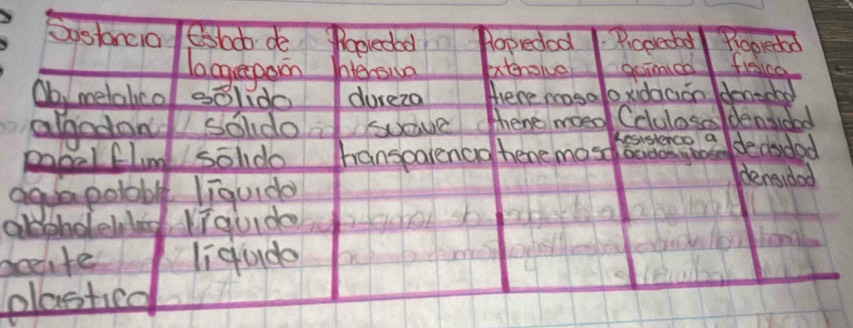 Sustancia Estado de Propiedad Propiedad Propiedad Propiedad
la agregación intensiva extensiva química física
Obj metalico sólido dureza tiene masa oxidación densidad
algodon sólido suave tiene masa Celulosa densidad
papel flim sólido transparencia tiene masa Resistencia a acidos y bases densidad
agua potable líquido densidad
alcohol etilico líquido
aceite líquido
plastico